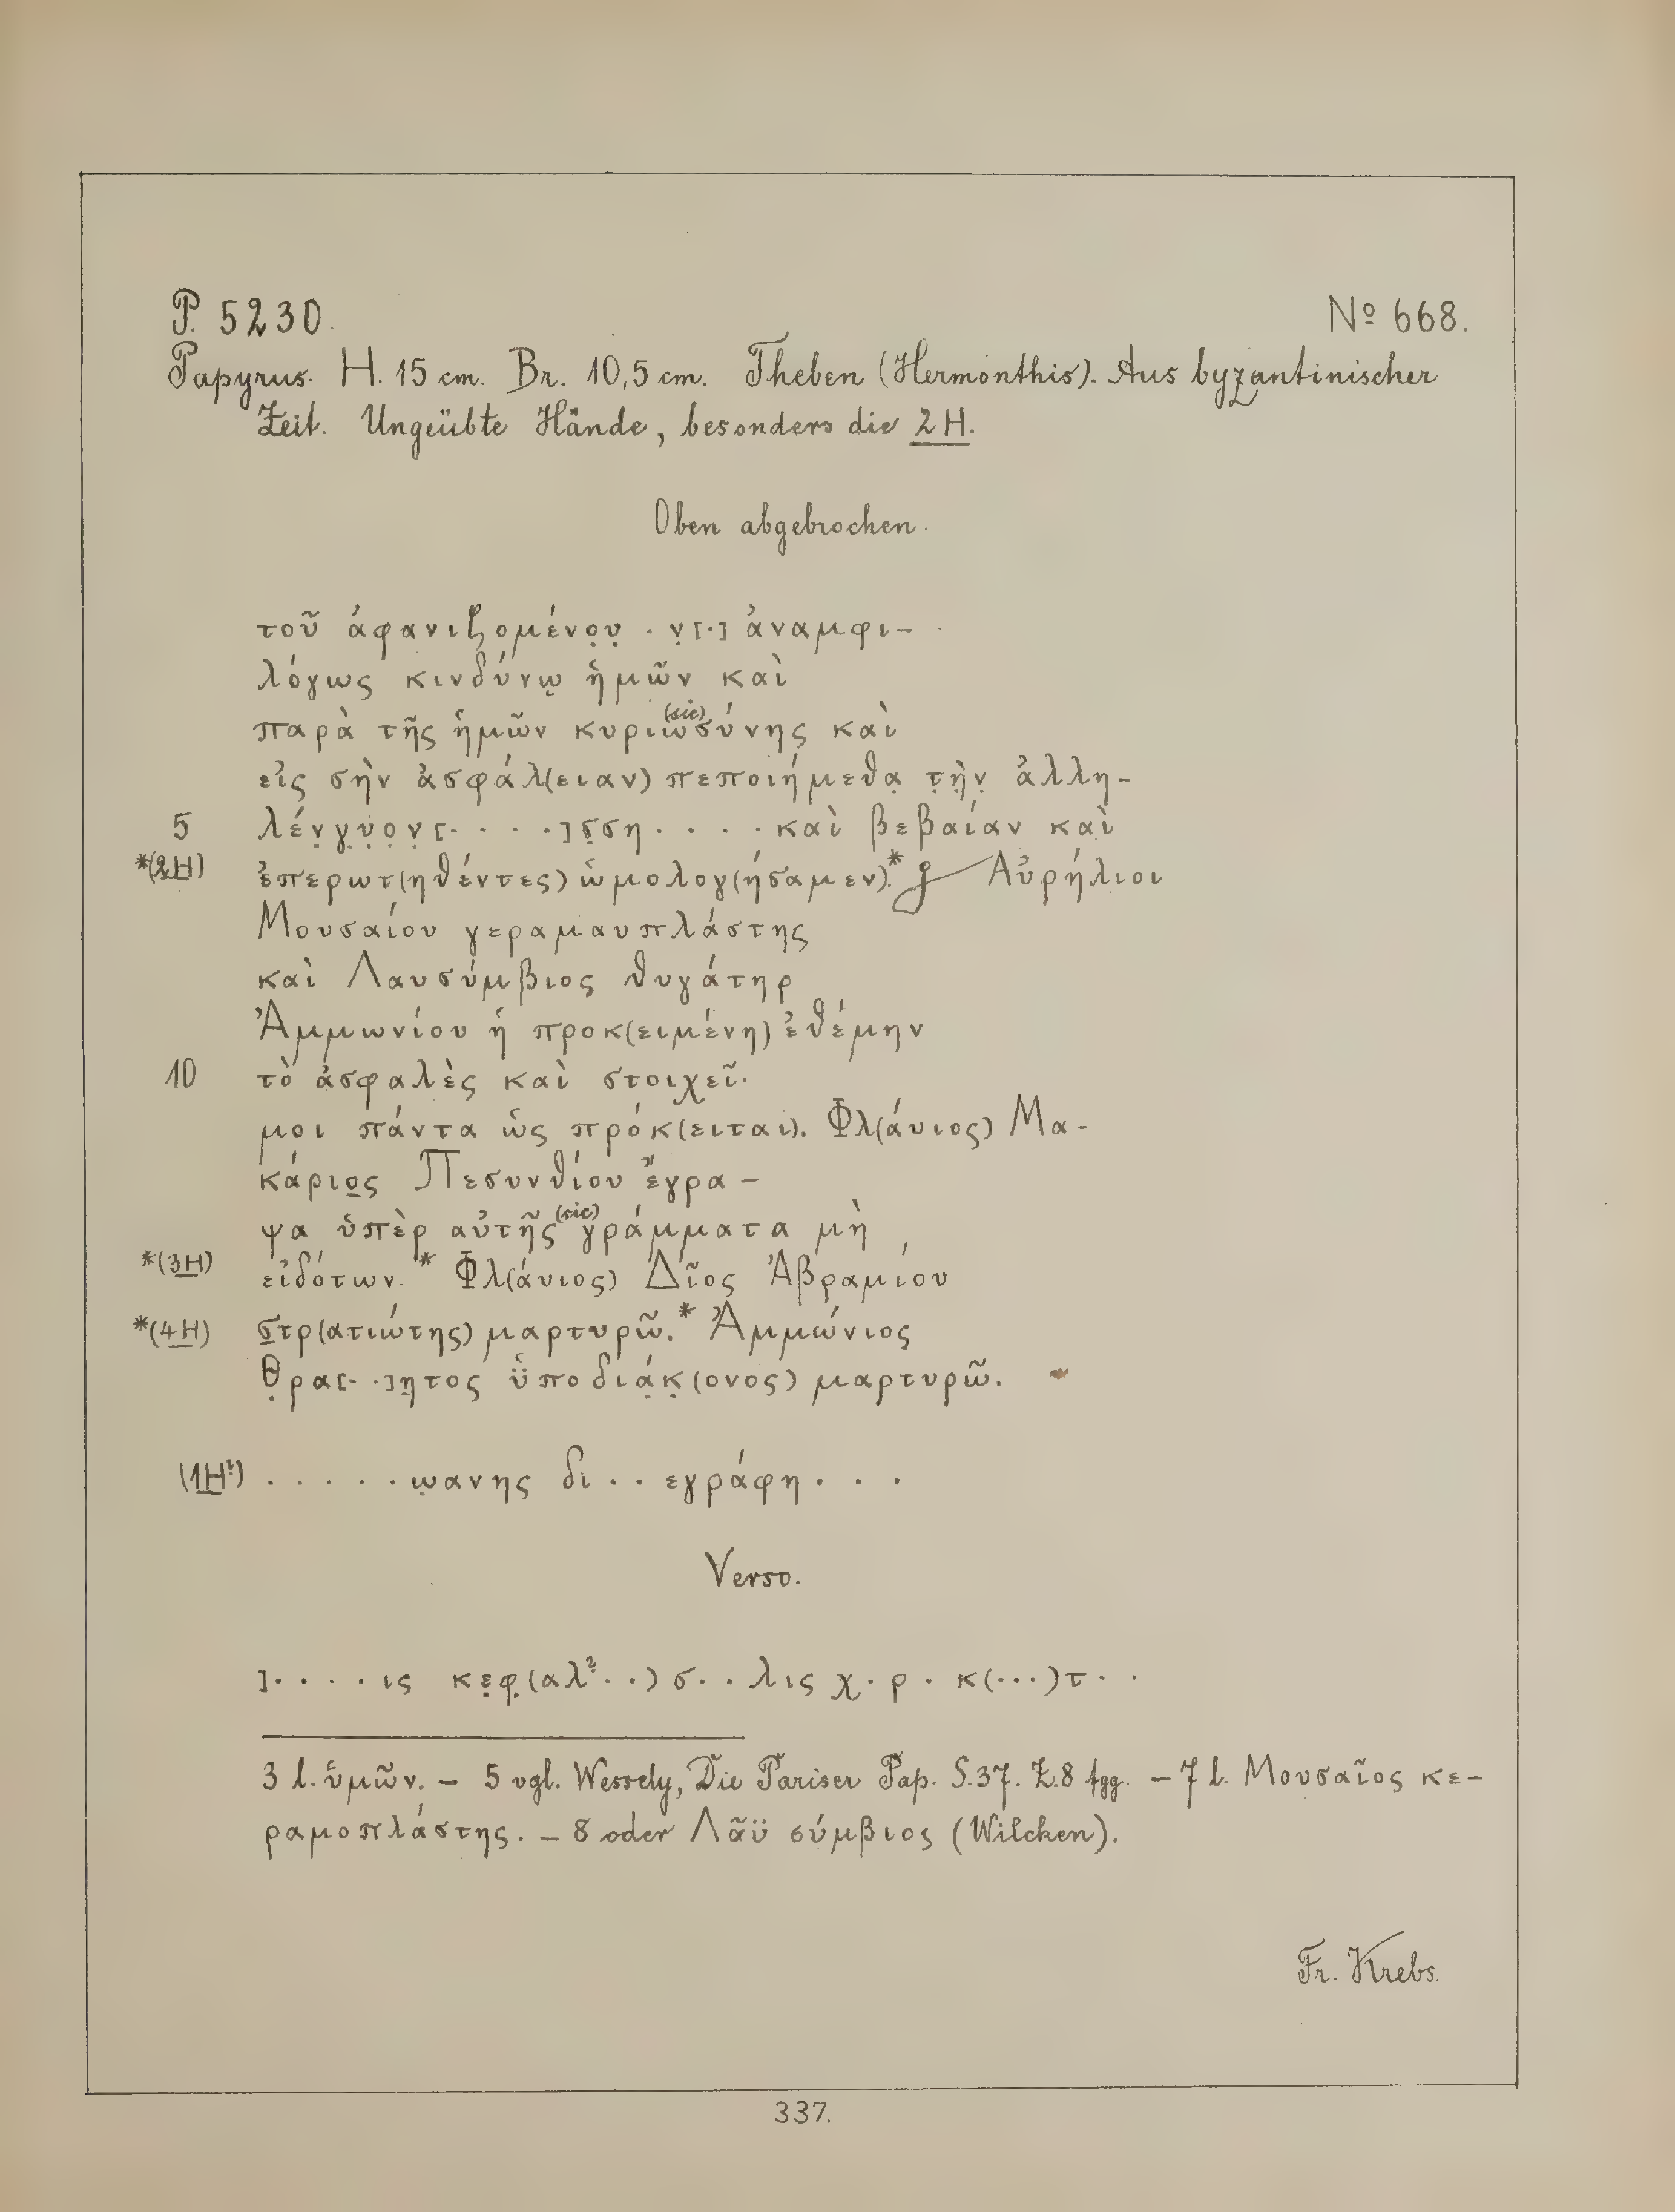 P. 5230. Nº 668.
Papyrus. H. 15 cm. Br. 10,5 cm. Theben (Hermonthis). Aus byzantinischer
Zeit. Ungeübte Hände, besonders die 2 H.
Oben abgebrochen.
τοῦ ἀφανιζομένο̣υ̣ . ν̣[.] ἀναμφι-
λόγως κινδύνῳ ἡμῶν καὶ
παρὰ τῆς ἡμῶν κυριωσύνης (sic) καὶ
εἰς σὴν ἀσφάλ(ειαν) πεποιήμεθα̣ τ̣ὴ̣ν̣ ἀλλη-
5 λέν̣γ̣ύ̣ο̣ν̣[. . . .]σ̣ση . . . . καὶ βεβαίαν καὶ
*(2H) ἐπερωτ(ηθέντες) ὡμολογ(ήσαμεν).* Αὐρήλιοι
Μουσαίου γεραμαυπλάστης
καὶ Λαυσύμβιος θυγάτηρ
Ἀμμωνίου ἡ προκ(ειμένη) ἐθέμην
10 τὸ ἀσφαλὲς καὶ στοιχεῖ.
μοι πάντα ὡς πρόκ(ειται). Φλ(άυιος) Μα-
κάριο̣ς Πεσυνθίου ἔγρα-
ψα ὑπὲρ αὐτῆς (sic) γράμματα μὴ
*(3H) εἰδότων. * Φλ(άυιος) Δῖος Ἀβραμίου
*(4H) σ̣τρ(ατιώτης) μαρτυρῶ. * Ἀμμώνιος
Θ̣ρα[. .]η̣τος ὑ̈ποδιά̣κ̣(ονος) μαρτυρῶ.
(1H?) . . . . . ω̣ανης δι . . εγράφη . . .
Verso.
] . . . . ις κε̣φ̣(αλ? . .) σ . . λις χ . ρ . κ(...)τ . .
3 l. ὑμῶν. – 5 vgl. Wessely, Die Pariser Pap. S. 37. Z. 8 fgg. – 7 l. Μουσαῖος κε-
ραμοπλάστης. – 8 oder Λᾶϋ σύμβιος (Wilcken).
Fr. Krebs.
337.